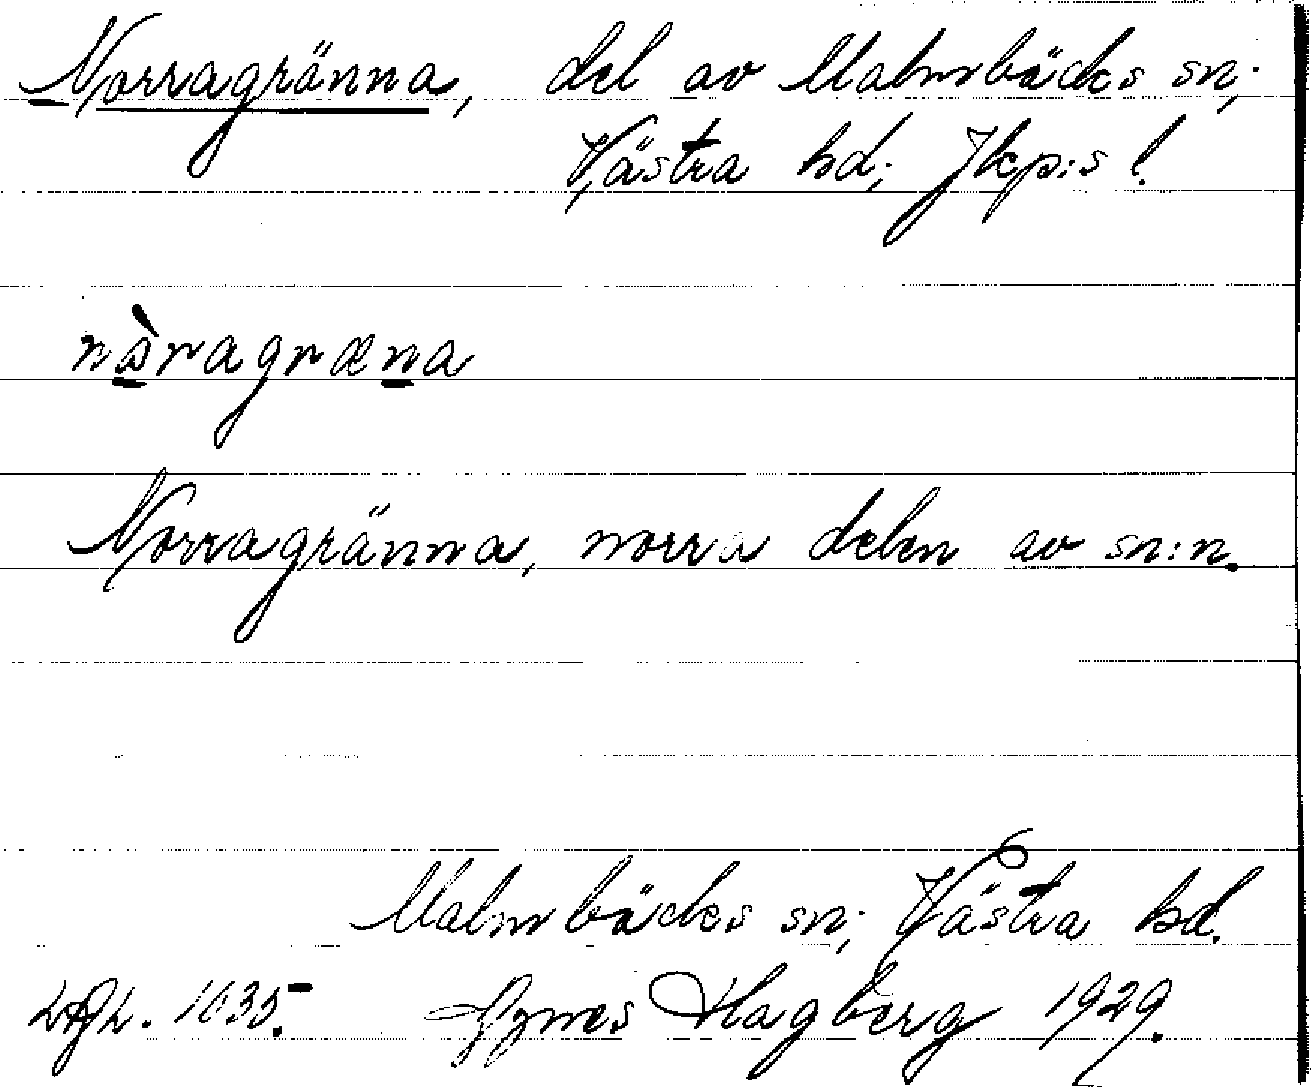 Norragränna, del av Malmbäcks sn;
Västra hd; Jkp:s l.
nàragræna
Norragränna, norra delen av sn:n.
Malmbäcks sn; Västra hd.
1035. Agnes Hagberg 1929.